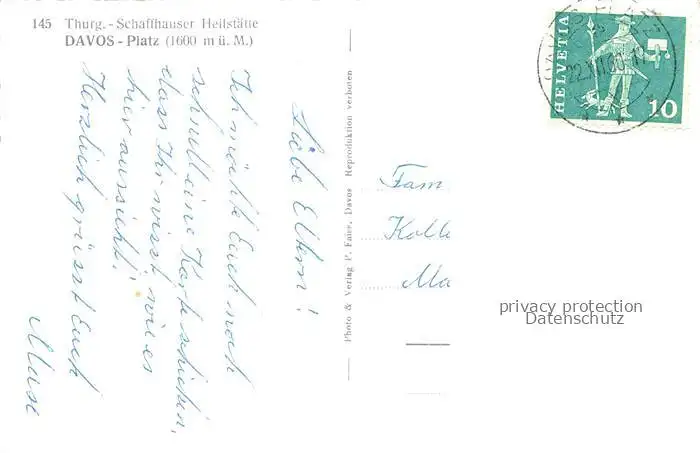 145 Thurg.-Schaffhauser Heilstätte
DAVOS-Platz (1600 m ü. M.)
Liebe Eltern!
Ich möchte Euch noch
schnell eine Karte schicken,
dass Ihr wisst wie es
hier aussieht.
Herzlich grüsst Euch
Photo & Verlag P. Faiss, Davos Reproduktion verboten
Fam
Kolle
Ma
HELVETIA
10
privacy protection
Datenschutz